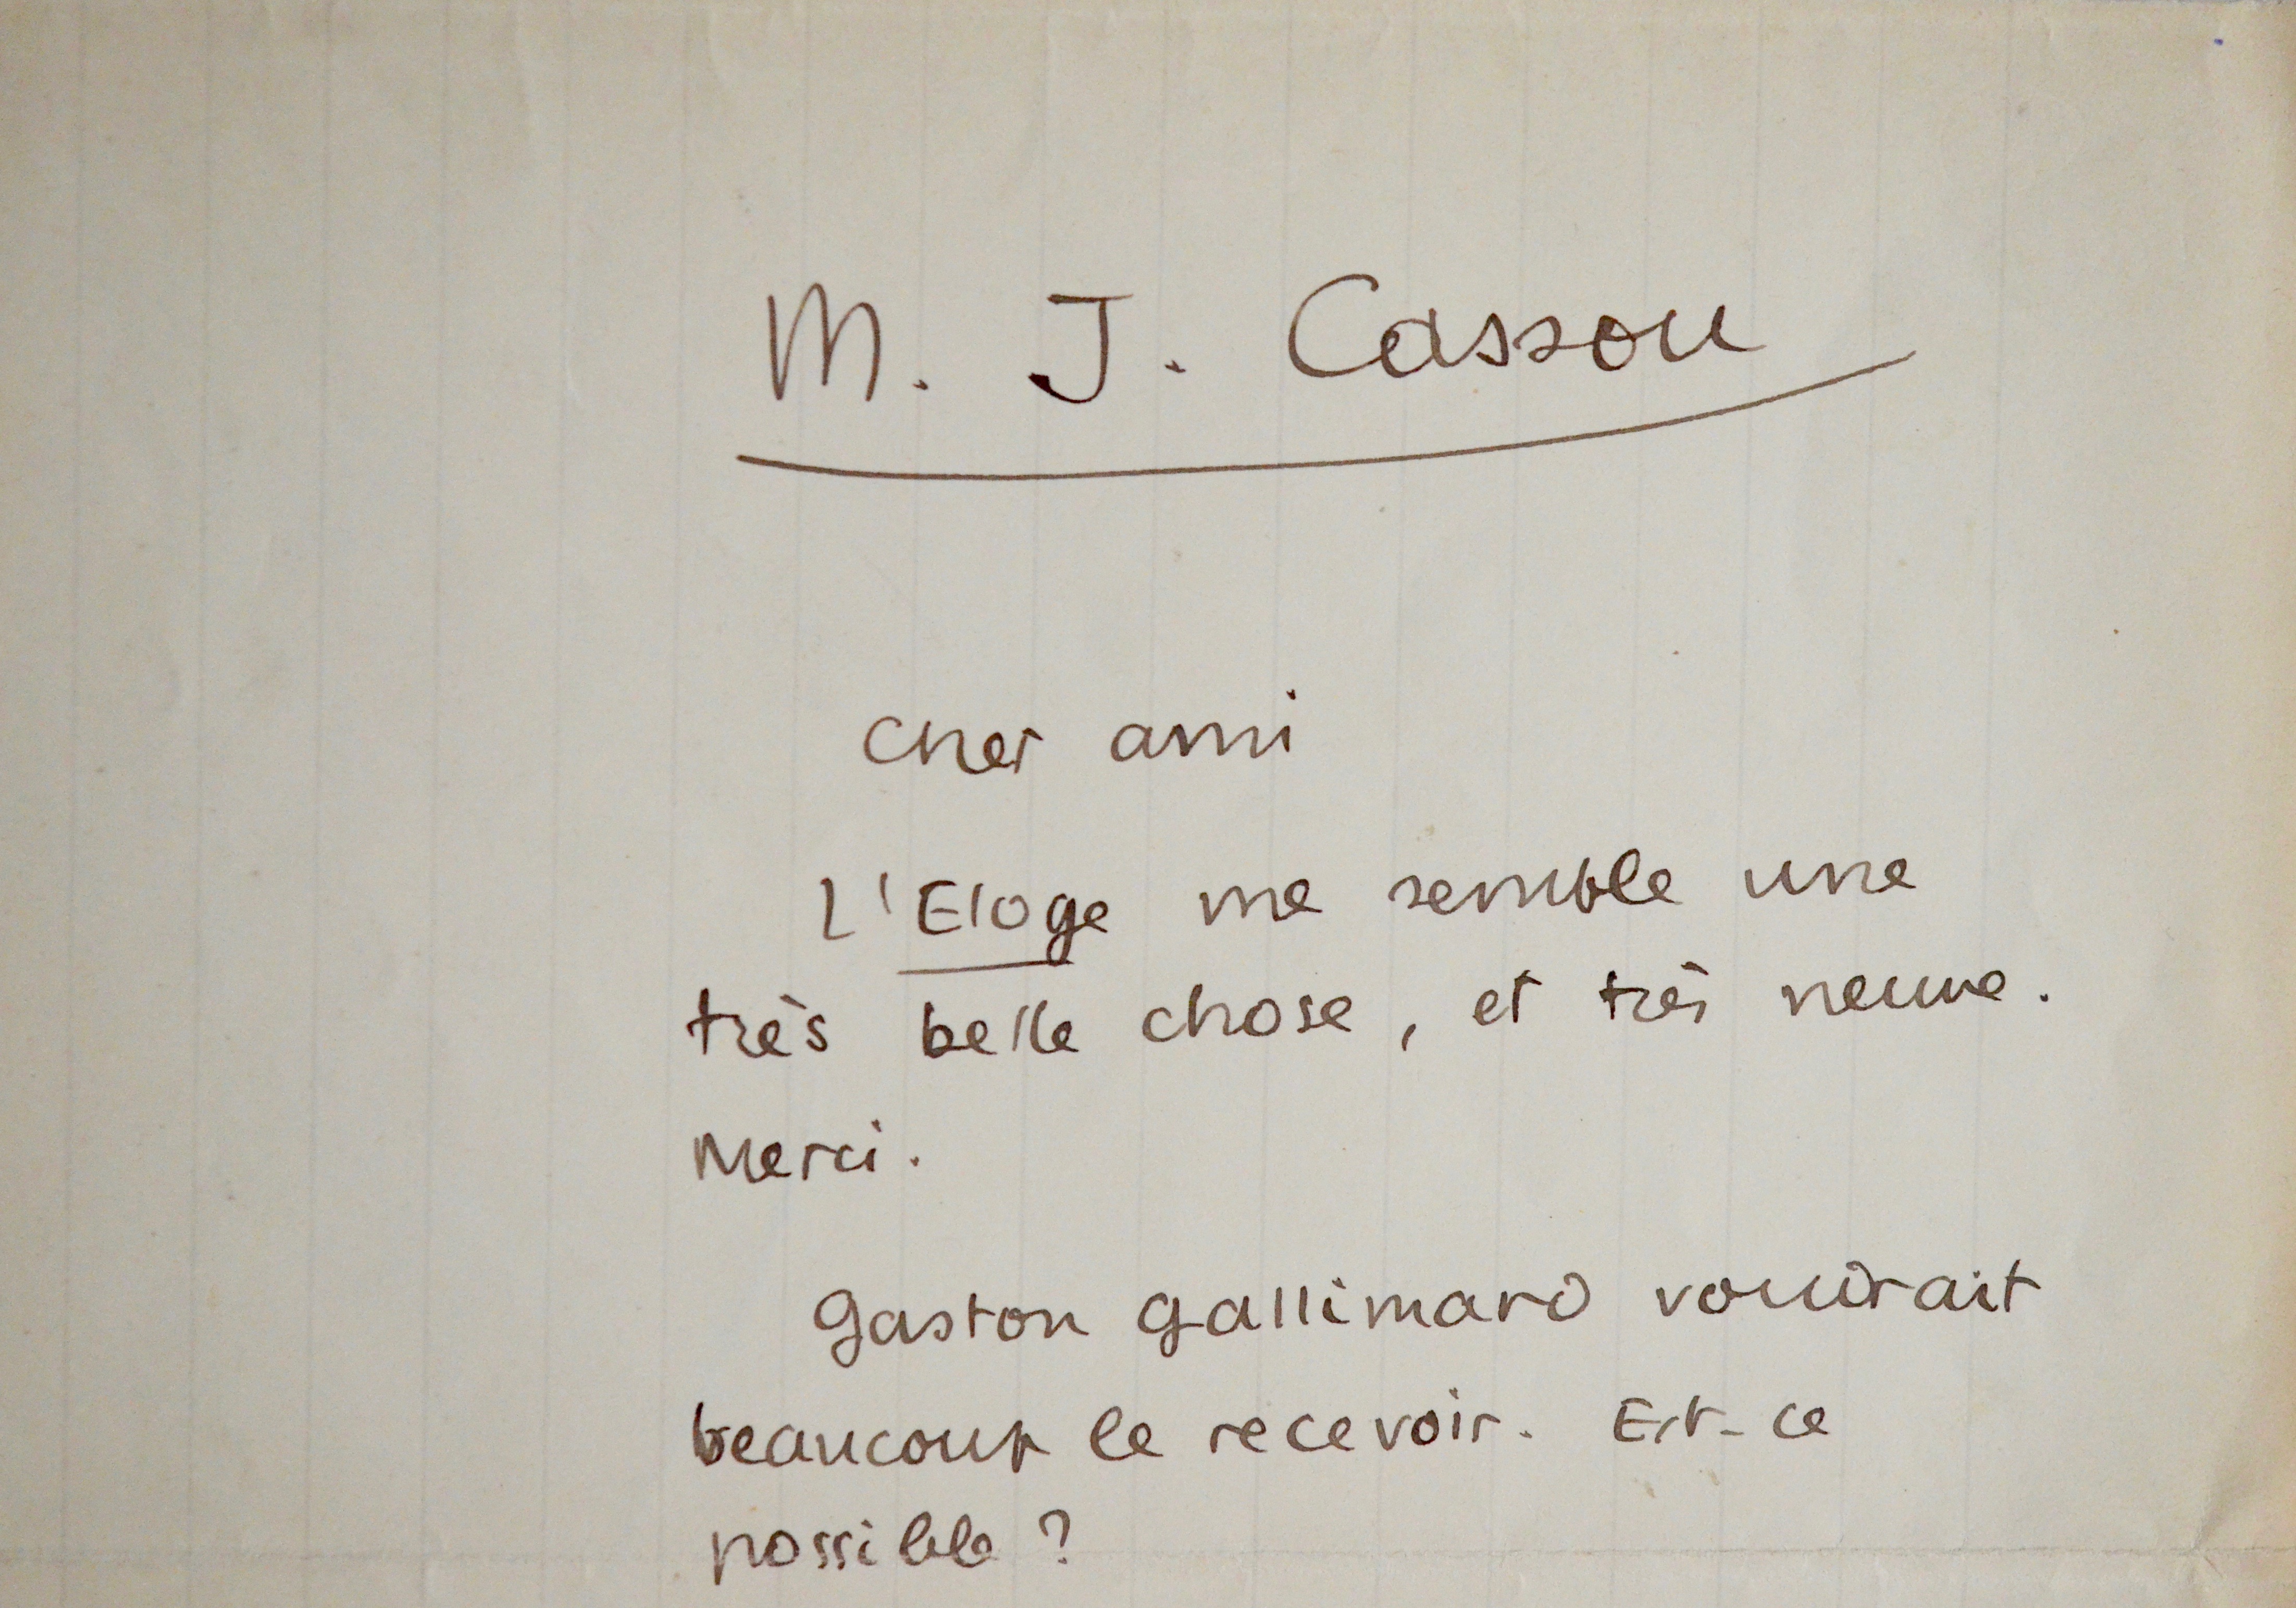 M. J. Cassou
Cher ami
L'Eloge me semble une
très belle chose, et très neuve.
Merci.
Gaston Gallimard voudrait
beaucoup le recevoir. Est-ce
possible ?